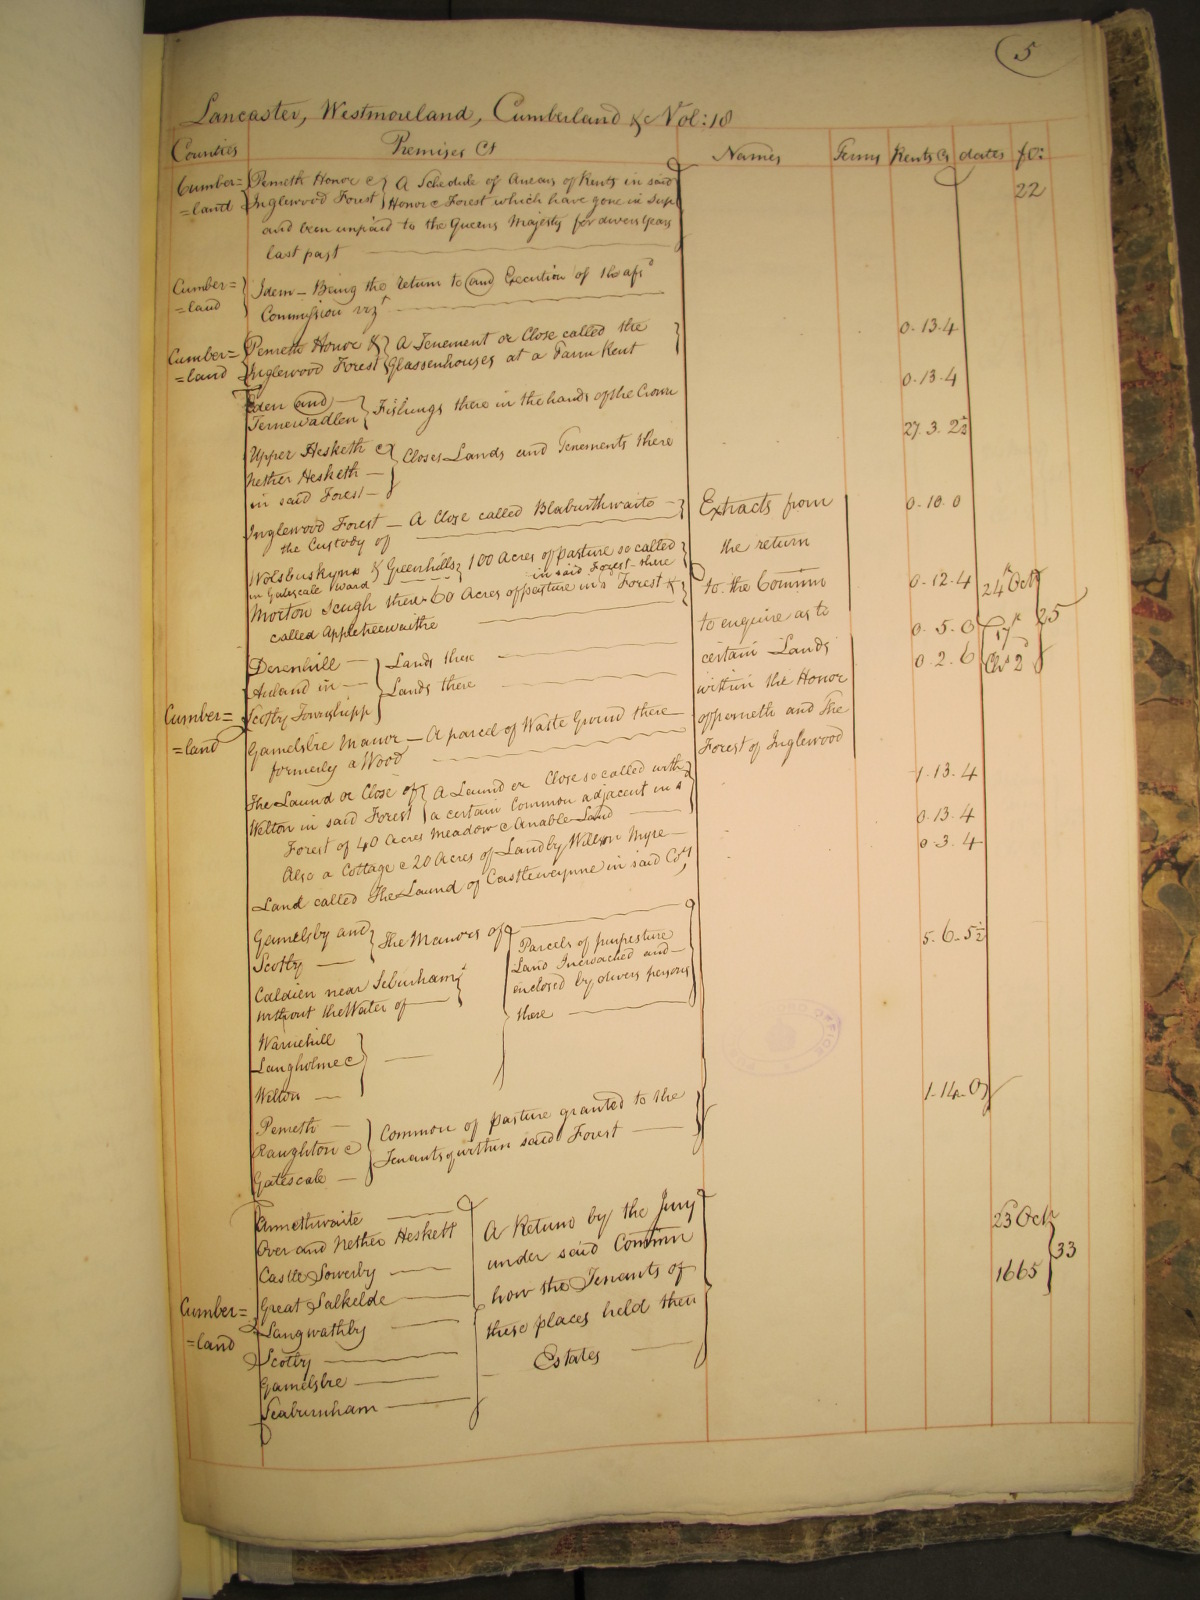 5
Lancaster, Westmoreland, Cumberland &c Vol: 18
Counties Premises &c Names Terms Rents &c dates fo:
Cumber= Penreth Honor & A Schedule of Arrears of Rents in said 22
=land Inglewood Forest Honor & Forest which have gone in Sup
and been unpaid to the Queens Majesty for divers Years
last past
Cumber= Idem - Being the return to and Execution of the afsd
=land Commission vizt
Cumber= Penreth Honor & A Tenement or Close called the 0.13.4
=land Inglewood Forest Glassenhouses at a Farm Rent
Eden and Fishings there in the hands of the Crown 0.13.4
Ternewadlen
Upper Hesketh & Closes Lands and Tenements there 27.3.2½
Nether Hesketh
in said Forest
Inglewood Forest - A Close called Blaburthwaite Extracts from 0.10.0
the Custody of the return
Wolsbuskyns & Greenhills 100 Acres of pasture so called to the Commn 0.12.4 24th Octr
in Gatescale Ward in said Forest there
Morton Scugh there 60 Acres of pasture in sd Forest to enquire as to 0.5.0 17th 25
called Appletreewaithe
Derenhill Lands there certain Lands 0.2.6 Chs 2d
Auland in Lands there within the Honor
Cumber= Scotby Townshipp of penreth and The
=land Gamelsbre Manor - A parcel of Waste Ground there Forest of Inglewood
formerly a Wood
The Laund or Close of A Laund or Close so called with 1.13.4
Welton in said Forest a certain Common adjacent in sd
Forest of 40 Acres Meadow & Arrable Land 0.13.4
Also a Cottage & 20 Acres of Land by Willson Myre 0.3.4
Land called The Laund of Castleweynne in said Coty
Gamelsby and The Manors of Parcels of purpresture 5.6.5½
Scotby Land Incroached and
Caldien near Seburham enclosed by divers persons
without the Water of there
Warnehill
Langholme &
Welton 1.14.0
Penreth Common of pasture granted to the
Raughton & Tenants within said Forest
Gatescale
Armethwaite A Return by the Jury 23 Octr
Over and Nether Heskett under said Commn
Castle Sowerby how the Tenants of 1665 33
Cumber= Great Salkelde these places held their
=land Langwathby Estates
Scotby
Gamelsbre
Seaburnham